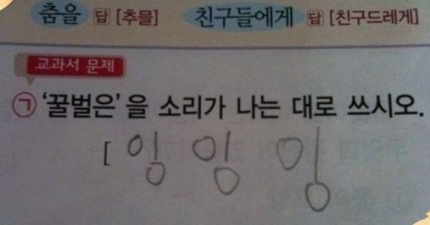 춤을 답 [추믈] 친구들에게 답 [친구드레게]
교과서 문제
㉠ '꿀벌은'을 소리가 나는 대로 쓰시오.
[ 잉 잉 잉